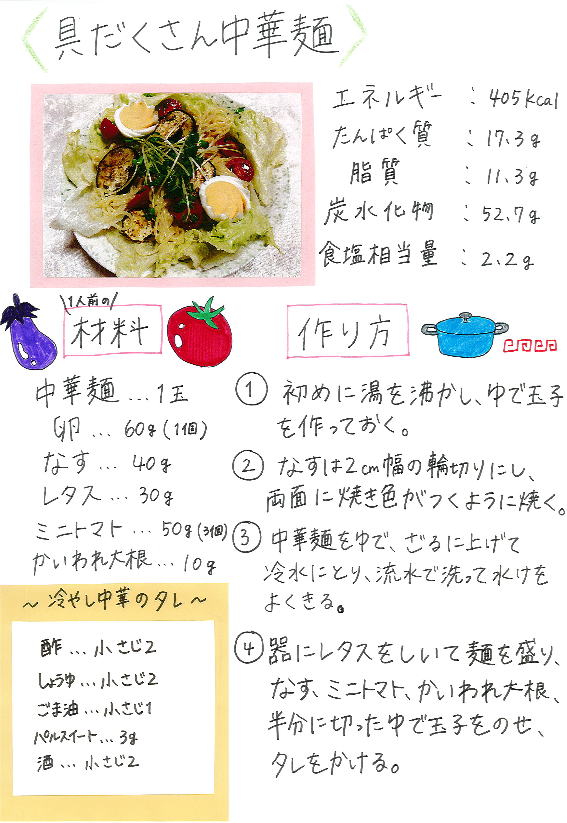 具だくさん中華麺
エネルギー : 405kcal
たんぱく質 : 17.3g
脂質 : 11.3g
炭水化物 : 52.7g
食塩相当量 : 2.2g
\1人前の/
材料
中華麺...1玉
卵...60g(1個)
なす...40g
レタス...30g
ミニトマト...50g(3個)
かいわれ大根...10g
~冷やし中華のタレ~
酢...小さじ2
しょうゆ...小さじ2
ごま油...小さじ1
パルスイート...3g
酒...小さじ2
作り方
① 初めに湯を沸かし、ゆで玉子
を作っておく。
② なすは2cm幅の輪切りにし、
両面に焼き色がつくように焼く。
③ 中華麺をゆで、ざるに上げて
冷水にとり、流水で洗って水けを
よくきる。
④ 器にレタスをしいて麺を盛り、
なす、ミニトマト、かいわれ大根、
半分に切ったゆで玉子をのせ、
タレをかける。